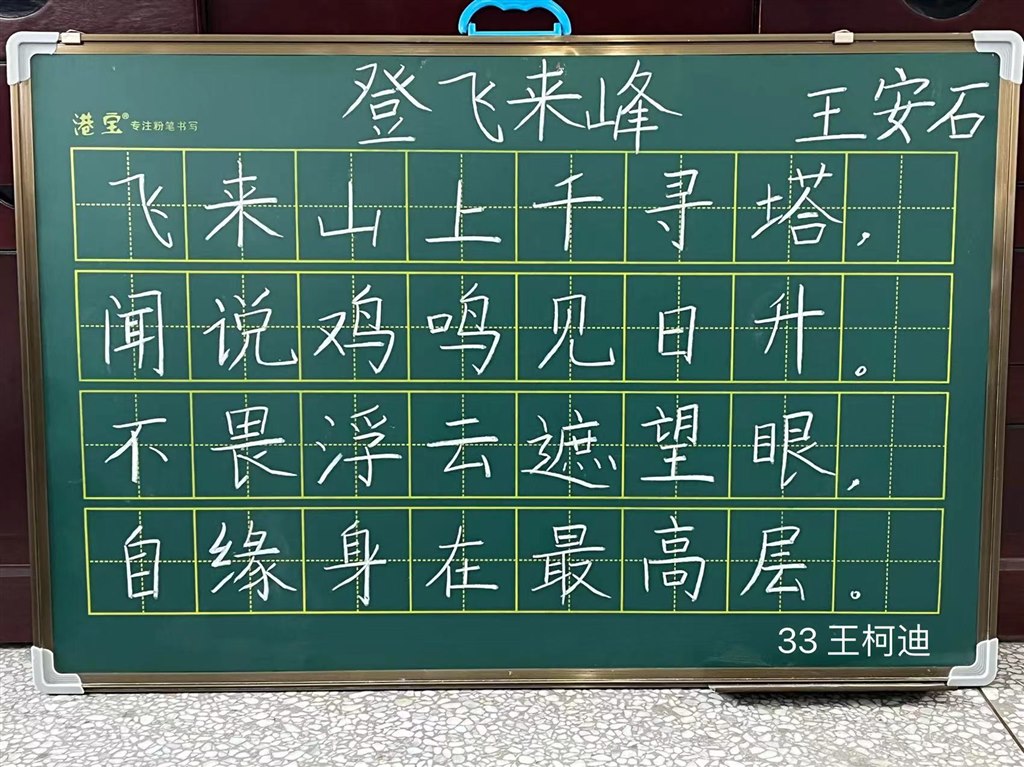 登飞来峰 王安石
港宝® 专注粉笔书写
飞来山上千寻塔，
闻说鸡鸣见日升。
不畏浮云遮望眼，
自缘身在最高层。
33 王柯迪